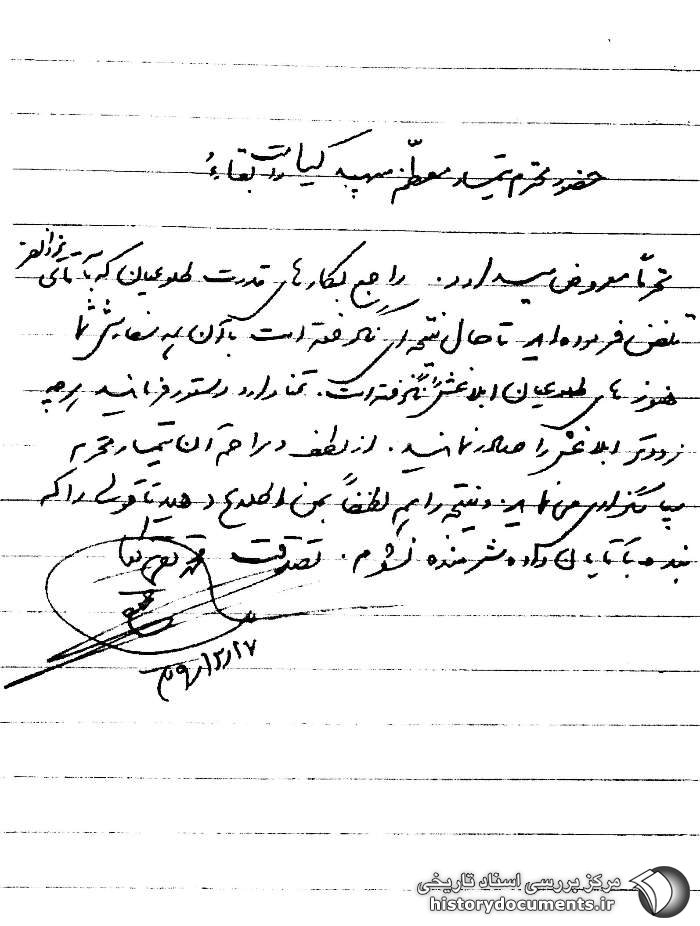 حضور محترم تیمسار معظم سپهبد کیا دامت بقائه
محترماً معروض میدارد. راجع بکارهای قدرت طلوعیان که با آقای
تلفن فرموده‌اید تا حال نتیجه‌ای نگرفته است با آن همه سفارش شما
هنوز طلوعیان ابلاغش را نگرفته است. تمنا دارد دستور فرمائید هرچه
زودتر ابلاغش را صادر نمایند. از لطف و مراحم آن تیمسار محترم
سپاسگزاری می‌نمایم و نتیجه را هم لطفاً بمن اطلاع دهید تا قولی را که
بنده بآقایان داده شرمنده نشوم. تصدقت
مرکز بررسی اسناد تاریخی
historydocuments.ir